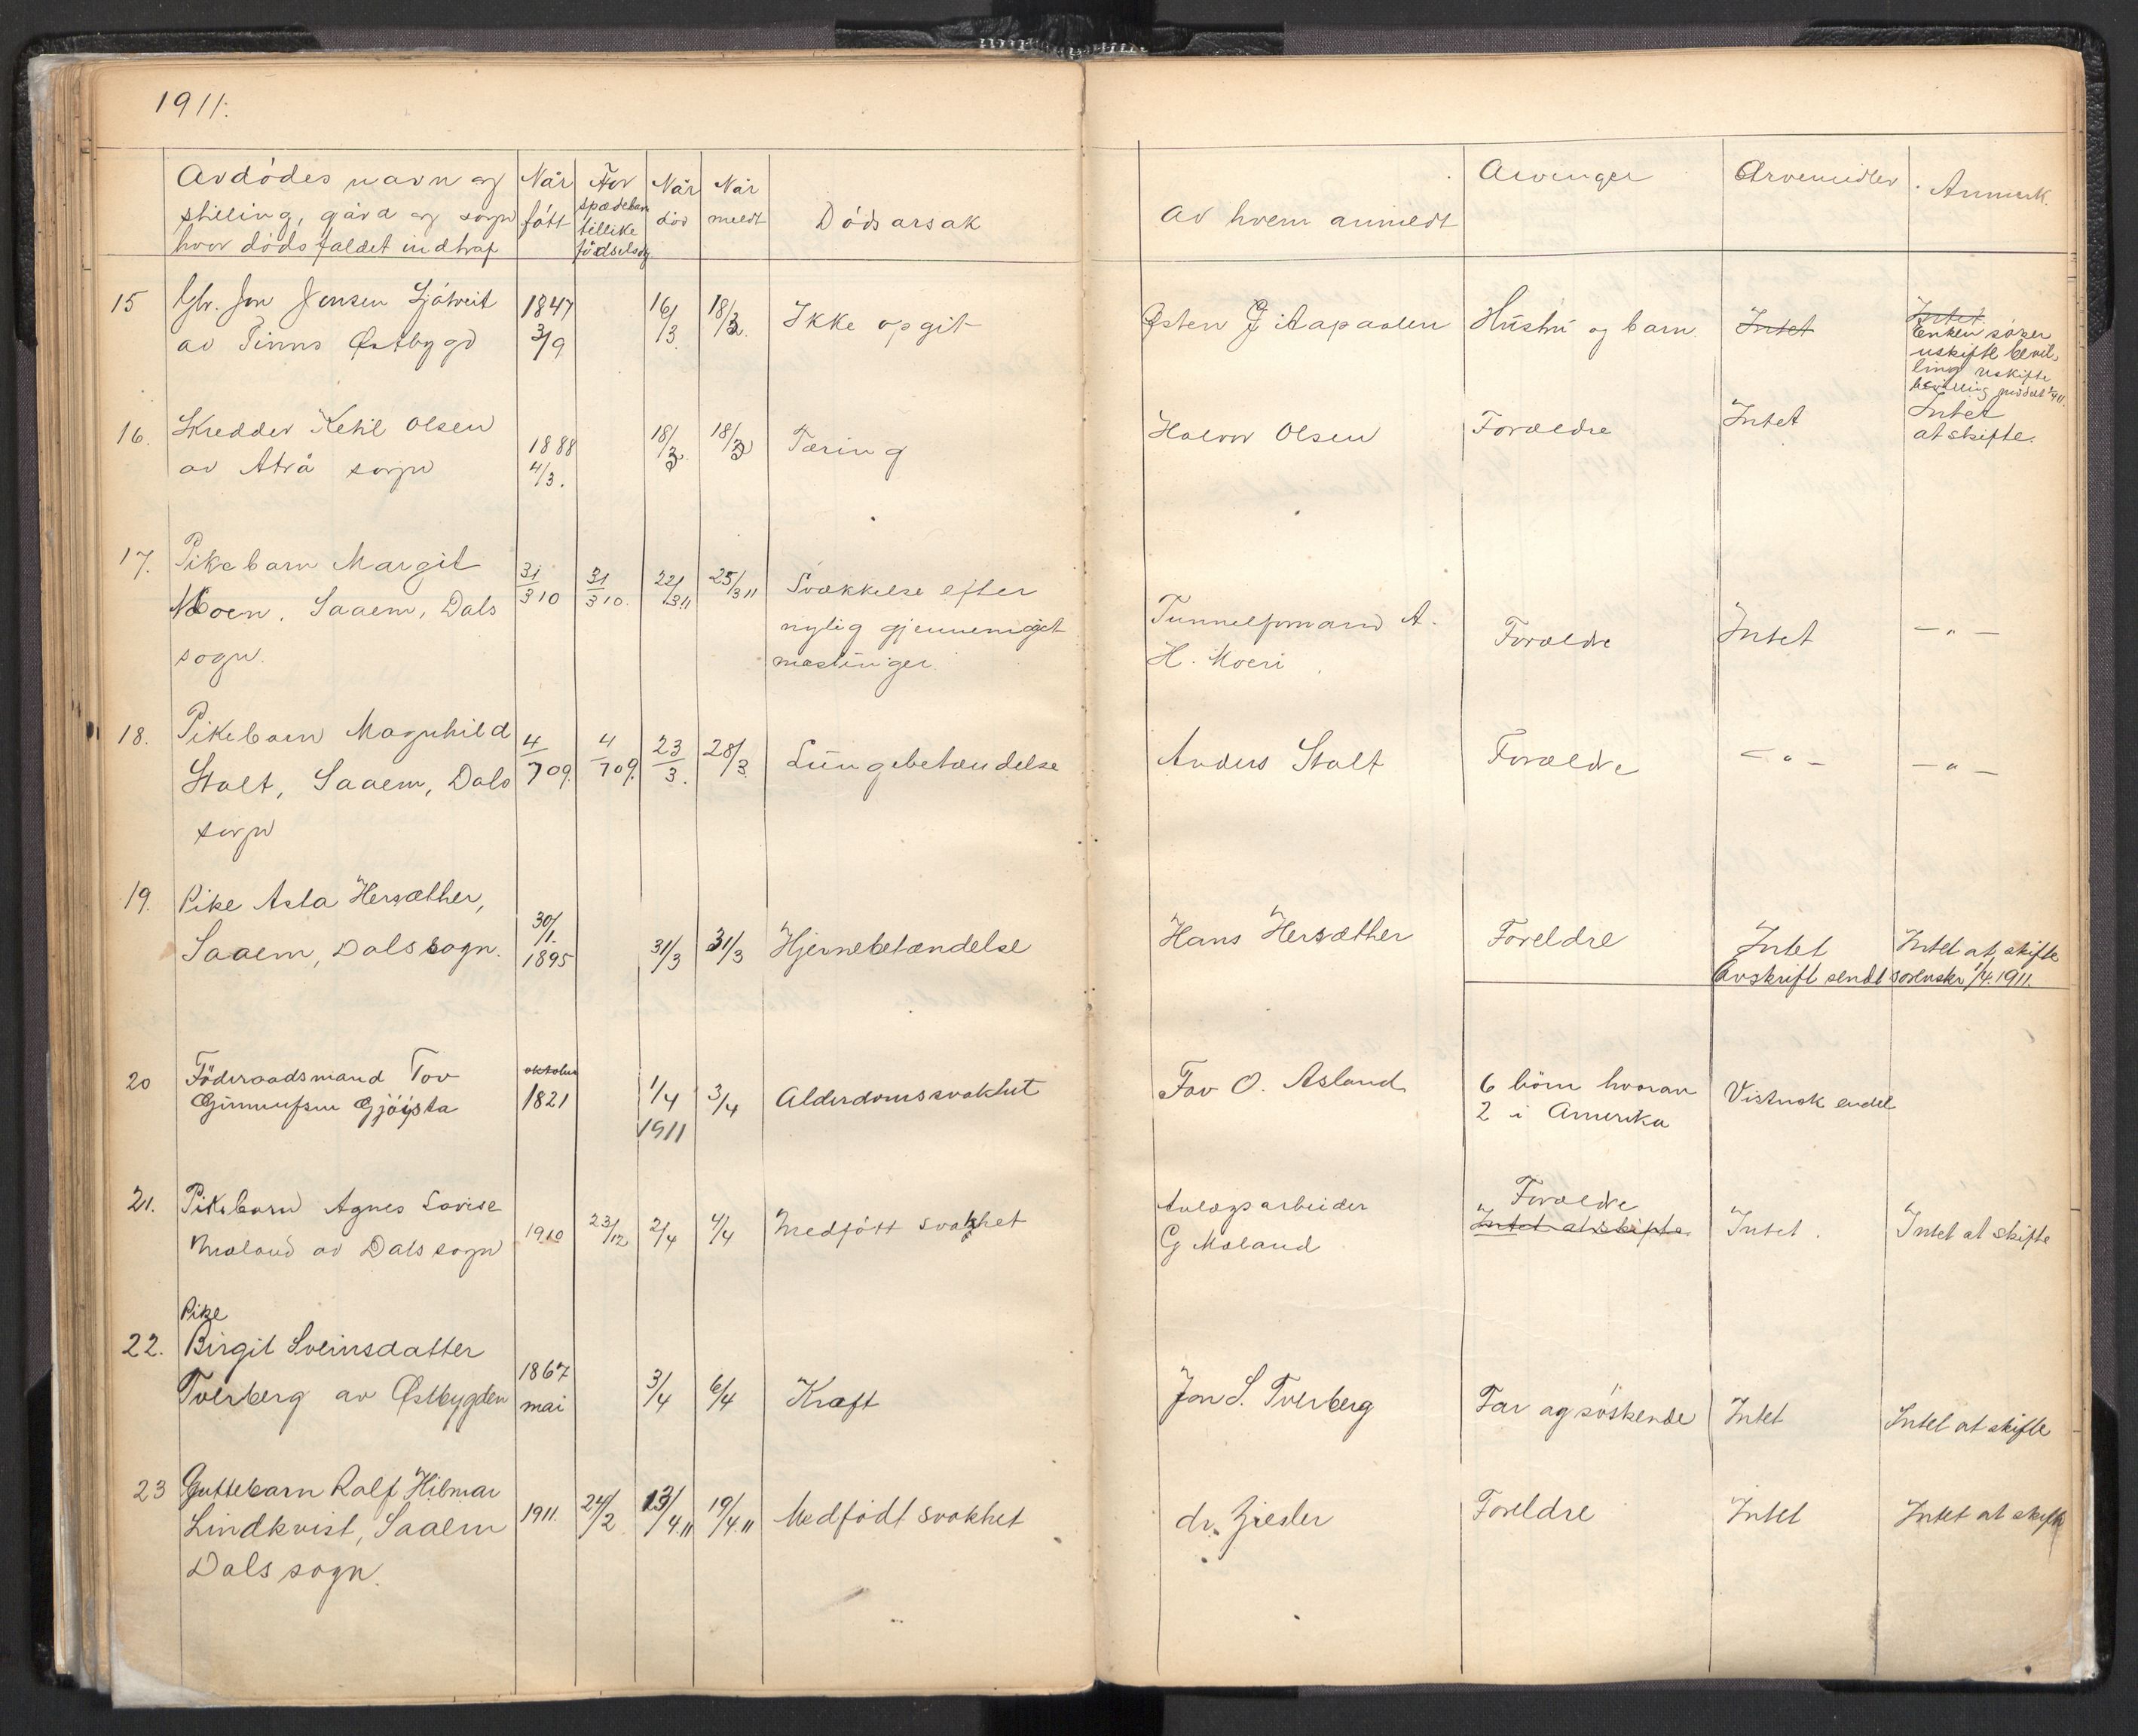 1911.
Avdödes navn og
stilling, gård og sogn
hvor dödsfaldet indtraf
Når
fött
For
spædebarn
tillike
födselsdg
Når
död
Når
meldt
Dödsarsak
Av hvem anmeldt
Arvinger
Arvemidler
Anmerk.
15
Gbr. Jon Jonsen Sjåtveit
av Tinns Østbygd
1847
3/9
16/3
18/3
Ikke opgit
Østen G
Hustru og barn
Intet
Intet
Enken söker
uskifte bevil-
ling uskifte
bevilling
16.
Skredder Ketil Olsen
av Atrå sogn
1888
4/3.
18/3
18/3
Tæring
Halvor Olsen
Forældre
Intet
Intet
at skifte.
17.
Pikebarn Margit
Moen, Saaem, Dals
sogn.
31/3 10
31/3 10.
22/3 11
25/3 11
Svækkelse efter
nylig gjennemgået
mæslinger.
Tunnelformand A.
H. Moen
Forældre
Intet
— „ —
18.
Pikebarn Magnhild
Stalt, Saaem, Dals
sogn
4/7 09
4/7 09.
23/3.
28/3
Lungebetændelse
Anders Stalt
Forældre
— „ —
— „ —
19.
Pike Asta Hersæther,
Saaem, Dals sogn.
30/1.
1895
31/3
31/3
Hjernebetændelse
Hans Hersæther
Foreldre
Intet
Intet at skifte
Avskrift sendt sorenskr 1/4.1911.
20
Föderaadsmand Tov
Gunnufsen Gjöista
oktober
1821
1/4
1911
3/4
Alderdomssvakhet
Tov O. Asland
6 börn hvorav
2 i Amerika
Vistnok endel
21.
Pikebarn Agnes Lovise
Moland av Dals sogn
1910
23/12
2/4
4/4
Medfött svakhet
Anlægsarbeider
G Moland
Forældre
Intet at skifte
Intet.
Intet at skifte
Pike
22.
Birgit Sveinsdatter
Tverberg av Østbygden
1867
mai
3/4
6/4
Kræft
Jon S. Tverberg
Far og söskende
Intet
Intet at skifte
23
Guttebarn Ralf Hilmar
Lindkvist, Saaem
Dals sogn.
1911.
24/2
13/4.11
19/4.11
Medfödt svakhet
dr. Ziesler
Foreldre
Intet
Intet at skifte